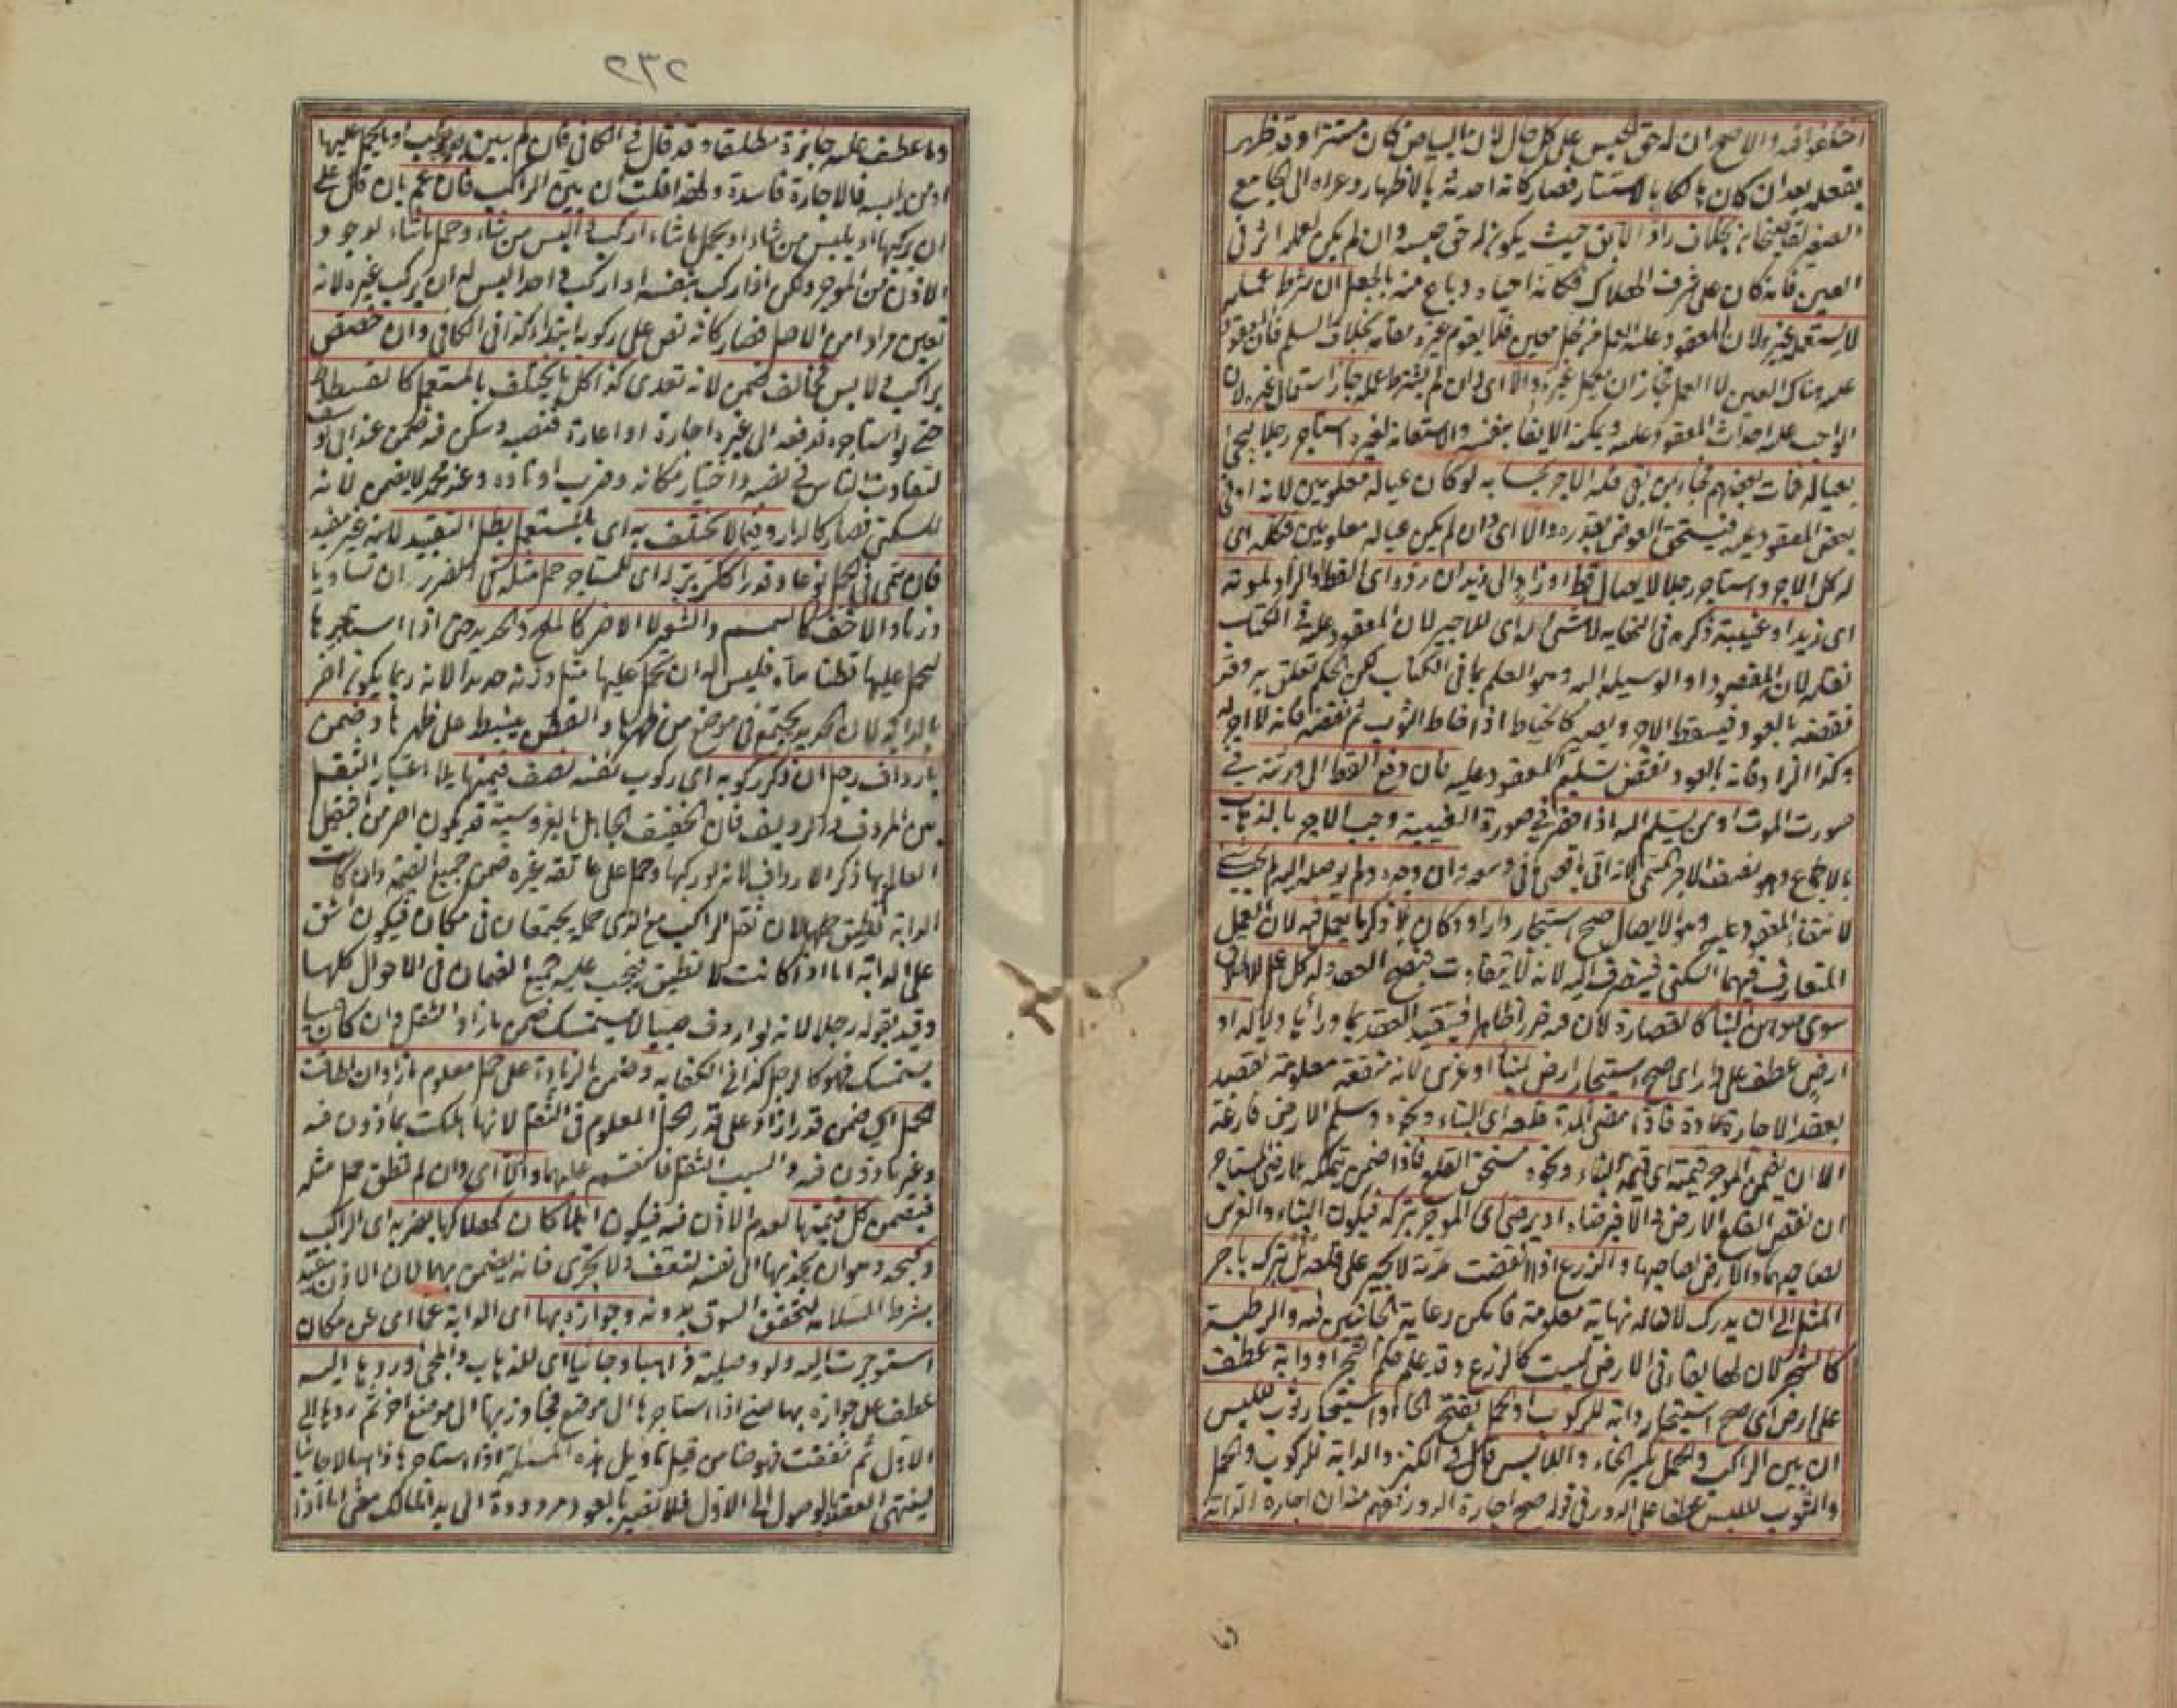 اختلفوا فيه والاصح ان له حق الحبس على كل حال لان البياض كان مستترا وقد ظهر
بفعله بعد ان كان هالكا بالاستتار فصار كانه احدثه بالاظهار وعزاه الى الجامع
الصغير لقاضيخان بخلاف راد الآبق حيث يكون له حق حبسه وان لم يكن لعمله اثر في
العين فانه كان على شرف الهلاك فكانه احياه وباع منه بالجعل ان شرط عمله
لا يستعمل غيره لان المعقود عليه العمل من محل معين فلا يقوم غيره مقامه بخلاف السلم فان المعقود
عليه هناك العين لا العمل فجاز ان يعمل غيره والا اى وان لم يشترط عمله جاز استعمال غيره لان
الواجب عليه احداث المعقود عليه ويمكنه الايفاء بنفسه والاستعانة بغيره استاجر رجلا ليجئ
بعياله فمات بعضهم فجاء بمن بقى فله الاجر بحسابه لو كان عياله معلومين لانه اوفى
بعض المعقود عليه فيستحق العوض بقدره والا اى وان لم يكن عياله معلومين فكله اى
له كل الاجر واستاجر رجلا لايصال قط او زاد الى زيد ان رده اى القط او الزاد لموته
اى زيد او غيبته ذكره فى النهاية لا شئ له اى للاجير لان المعقود عليه فى الكتاب
نقله لانه المقصود او الوسيلة اليه وهو العلم بما فى الكتاب لكن الحكم تعلق به وقد
نقضه بالعود فيسقط الاجر ويصير كالخياط اذا خاط الثوب ثم نقضه فانه لا اجر له
وكذا الزاد فانه بالعود نقض تسليم المعقود عليه فان دفع القط الى ورثته فى
صورت الموت او من يسلم اليه اذا حضر فى صورة الغيبة وجب الاجر بالذهاب
بالاجماع وهو نصف الاجر المسمى لانه اتى باقصى ما فى وسعه وان وجده ولم يوصله اليه لم يجب شئ
لانتفاء المعقود عليه وهو الايصال صح استيجار دار او دكان بلا ذكر ما يعمل فيه لان العمل
المتعارف فيهما السكنى فينصرف اليه لانه لا يتفاوت فيصح العقد وله كل عمل للاطلاق
سوى موهن البناء كالقصارة لان فيه ضررا ظاهرا فيتقيد العقد بما وراءها دلالة او
ارض عطف على دار اى صح استيجار ارض لبناء او غرس لانه منفعة معلومة تقصد
بعقد الاجارة عادة فاذا مضى المدة قلعه اى البناء ونحوه وسلم الارض فارغة
الا ان يضمن الموجر قيمته اى قيمة البناء ونحوه مستحق القلع فاذا ضمن يتملكه بلا رضى المستاجر
ان نقص القلع الارض والا فبرضاه او يرضى اى الموجر بتركه فيكون البناء والغرس
لصاحبهما والارض لصاحبها والزرع اذا انقضت مدته لا يجبر على قلعه بل يترك باجر
المثل الى ان يدرك لان له نهاية معلومة فامكن رعاية الجانبين فيه والرطبة
كالشجر لان لها بقاء فى الارض ليست كالزرع وقد علم حكم الشجر او دابة عطف
على ارض اى صح استيجار دابة للركوب او الحمل بفتح الحاء او استيجار ثوب للبس
ان بين الراكب والحمل بكسر الحاء واللابس قال فى الكنز والدابة للركوب والحمل
والثوب للبس عطفا على الدور فى قوله صح اجارة الدور ففهم منه ان اجارة الدابة
٢٣٢
وما عطف عليه جايزة مطلقا وقد قال فى الكافى فان لم يبين من يركب او ما يحمل عليها
او من يلبسه فالاجارة فاسدة ولهذا قلت ان بين الراكب فان عمم بان قال على
ان يركبها او يلبس من شاء او يحمل ما شاء اركب والبس من شاء وحمل ما شاء لوجود
الاذن من الموجر ولكن اذا ركب بنفسه او اركب واحدا ليس له ان يركب غيره لانه
تعين مرادا من الاصل فصار كانه نص على ركوبه ابتداء كذا فى الكافى وان خصص
براكب ولابس فخالف ضمن لانه تعدى كذا كل ما يختلف بالمستعمل كالفسطاط
حتى لو استاجره فدفعه الى غيره اجارة او اعارة فنصبه وسكن فيه ضمن عند ابى يوسف
لتفاوت الناس فى نصبه واختيار مكانه وضرب اوتاده وعند محمد لا يضمن لانه
للسكنى فصار كالدار وفيما لا يختلف به اى بالمستعمل بطل التقييد لانه غير مفيد
فان سمى فى الحمل نوعا وقدرا ككر بر له اى للمستاجر حمل مثله فى الضرر ان تساويا
وزنا والاخف كالسمسم والشعير لا الاضر كالملح والحديد حتى اذا استاجرها
ليحمل عليها قطنا سماه فليس له ان يحمل عليها مثل وزنه حديدا لانه ربما يكون اضر
بالدابة لان الحديد يجتمع فى موضع من ظهرها والقطن ينبسط على ظهرها وضمن
بارداف رجل ان ذكر ركوبه اى ركوب نفسه نصف قيمتها بلا اعتبار الثقل
بين المردف والرديف فان الخفيف الجاهل بالفروسية قد يكون اضر من الثقيل
العالم بها ذكر الارداف لانه لو ركبها وحمل على عاتقه غيره ضمن جميع القيمة وان كانت
الدابة تطيق حملها لان ثقل الراكب مع الذى حمله يجتمعان فى مكان فيكون اشق
على الدابة اما اذا كانت لا تطيق فيجب عليه جميع الضمان فى الاحوال كلها
وقيد بقوله رجلا لانه لو اردف صبيا لا يستمسك ضمن ما زاد الثقل وان كان صبيا
يستمسك فهو كالرجل كذا فى الكفاية وضمن الزيادة على حمل معلوم ما زاد ان اطاقت
الحمل اى ضمن قدر ما زاد على قدر الحمل المعلوم فى الثقل لانها هلكت بماذون فيه
وغير ماذون فيه والسبب الثقل فانقسم عليهما والا اى وان لم تطق حمل مثله
فيضمن كل قيمتها لعدم الاذن فيه فيكون اهلاكا كهلاكها بضربه اى الراكب
وكبحه وهو ان يجذبها الى نفسه لتقف ولا تجرى فانه يضمن بهما لان الاذن مقيد
بشرط السلامة ليتحقق السوق بدونه وجوازه بها اى الدابة عما اى عن مكان
استوجرت اليه ولو وصلية ذاهبا وجائيا اى للذهاب والمجئ وردها اليه
عطف على جوازه بها يعنى اذا استاجرها الى موضع فجاوز بها الى موضع اخر ثم ردها الى
الاول ثم نفقت فهو ضامن قيل تاويل هذه المسئلة اذا استاجرها ذاهبا لا جائيا
لينتهى العقد بالوصول الى الاول فلا يصير بالعود مردودة الى يد المالك معنى اما اذا